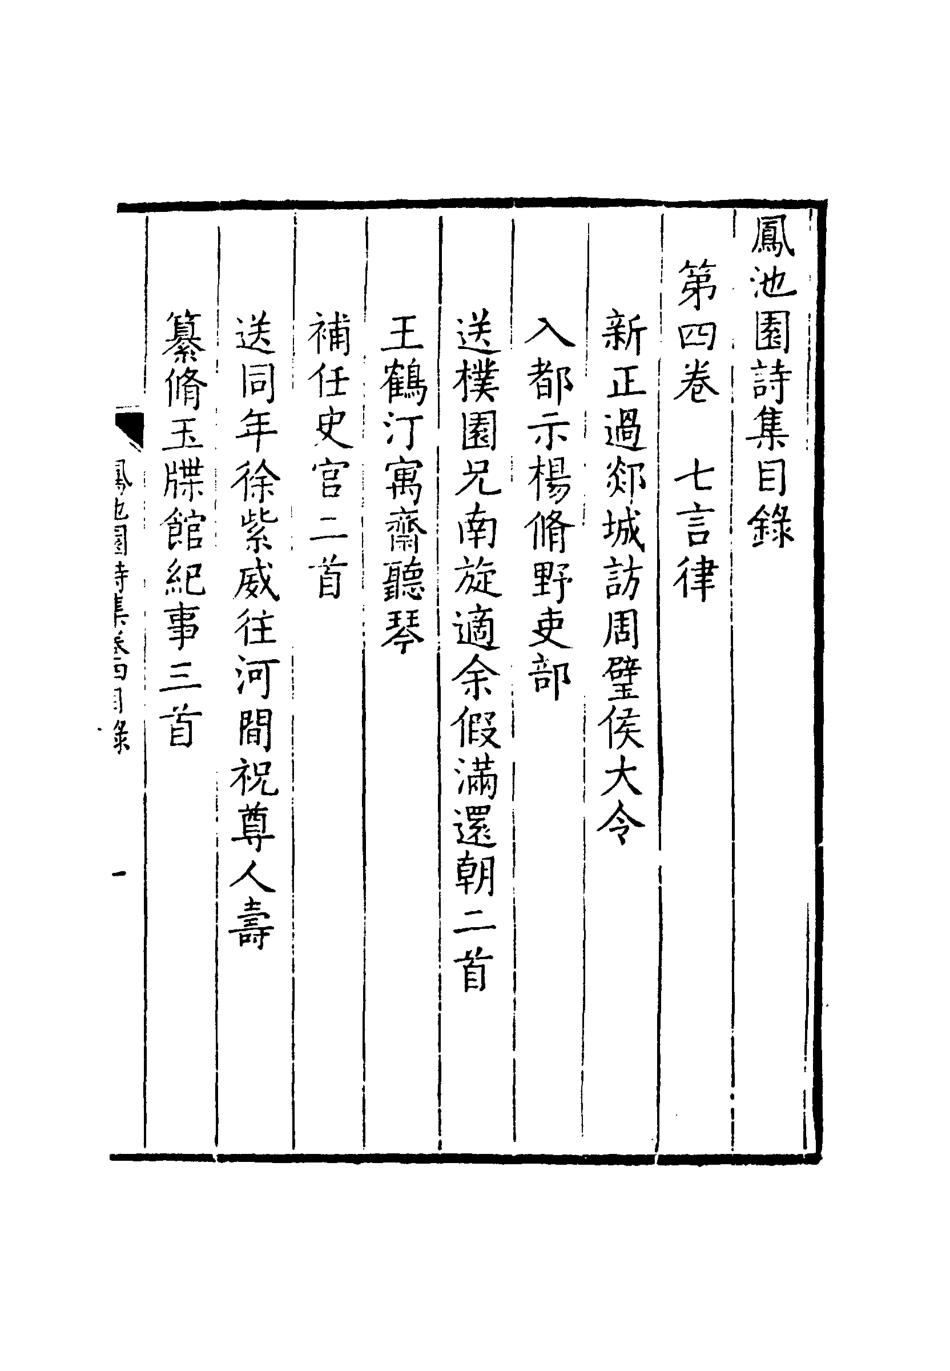 鳳池園詩集目錄
第四卷　七言律
新正過郯城訪周璧侯大令
入都示楊脩野吏部
送樸園兄南旋適余假滿還朝二首
王鶴汀寓齋聽琴
補任史官二首
送同年徐紫威往河間祝尊人壽
纂脩玉牒館紀事三首
鳳池園詩集卷四目錄　一